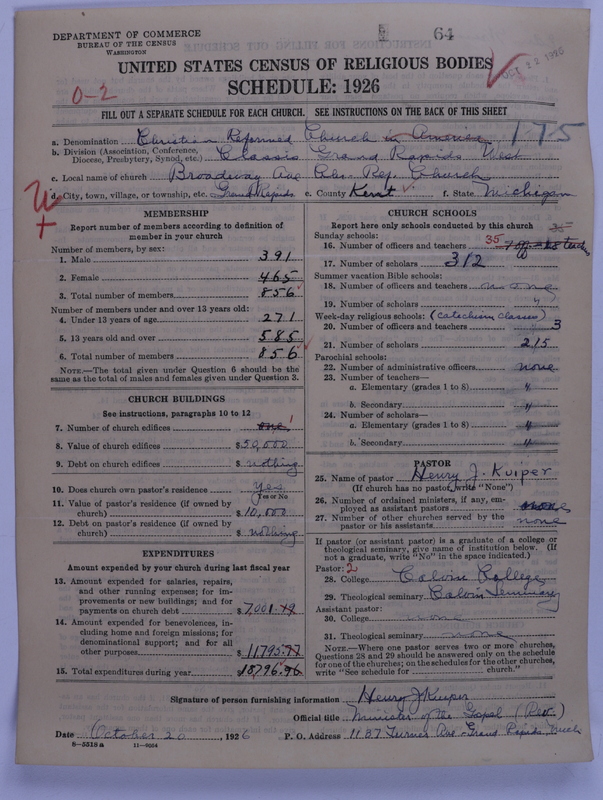 DEPARTMENT OF COMMERCE
BUREAU OF THE CENSUS
WASHINGTON
64
OCT 22 1926
UNITED STATES CENSUS OF RELIGIOUS BODIES
SCHEDULE: 1926
0-2
FILL OUT A SEPARATE SCHEDULE FOR EACH CHURCH. SEE INSTRUCTIONS ON THE BACK OF THIS SHEET
a. Denomination Christian Reformed Church in America 175
b. Division (Association, Conference, Diocese, Presbytery, Synod, etc.) Classis Grand Rapids West
c. Local name of church Broadway Ave Chr. Ref. Church
d. City, town, village, or township, etc. Grand Rapids e. County Kent f. State Michigan
MEMBERSHIP
Report number of members according to definition of
member in your church
Number of members, by sex:
1. Male 391
2. Female 465
3. Total number of members 856
Number of members under and over 13 years old:
4. Under 13 years of age 271
5. 13 years old and over 585
6. Total number of members 856
NOTE.—The total given under Question 6 should be the
same as the total of males and females given under Question 3.
CHURCH BUILDINGS
See instructions, paragraphs 10 to 12
7. Number of church edifices one 1
8. Value of church edifices $50,000
9. Debt on church edifices $ nothing
10. Does church own pastor's residence yes
Yes or No
11. Value of pastor's residence (if owned by
church) $10,000
12. Debt on pastor's residence (if owned by
church) $ nothing
EXPENDITURES
Amount expended by your church during last fiscal year
13. Amount expended for salaries, repairs,
and other running expenses; for im-
provements or new buildings; and for
payments on church debt $7,001.19
14. Amount expended for benevolences, in-
cluding home and foreign missions; for
denominational support; and for all
other purposes $11795.77
15. Total expenditures during year $18796.96
CHURCH SCHOOLS
Report here only schools conducted by this church
Sunday schools: 35
16. Number of officers and teachers 35 7 off - 28 teach
17. Number of scholars 312
Summer vacation Bible schools:
18. Number of officers and teachers none
19. Number of scholars "
Week-day religious schools: (catechism classes)
20. Number of officers and teachers 3
21. Number of scholars 215
Parochial schools:
22. Number of administrative officers none
23. Number of teachers—
a. Elementary (grades 1 to 8) "
b. Secondary "
24. Number of scholars—
a. Elementary (grades 1 to 8) "
b. Secondary "
PASTOR
25. Name of pastor Henry J. Kuiper
(If church has no pastor, write "None")
26. Number of ordained ministers, if any, em-
ployed as assistant pastors none
27. Number of other churches served by the
pastor or his assistants none
If pastor (or assistant pastor) is a graduate of a college or
theological seminary, give name of institution below. (If
not a graduate, write "No" in the space indicated.)
Pastor: 2
28. College Calvin College
29. Theological seminary Calvin Seminary
Assistant pastor:
30. College none
31. Theological seminary none
NOTE.—Where one pastor serves two or more churches,
Questions 28 and 29 should be answered only on the schedule
for one of the churches; on the schedules for the other churches,
write "See schedule for church."
Signature of person furnishing information Henry J Kuiper
Official title Minister of the Gospel (Rev.)
Date October 20, 1926 P. O. Address 1187 Turner Ave - Grand Rapids, Mich
8-5518 a 11-9054